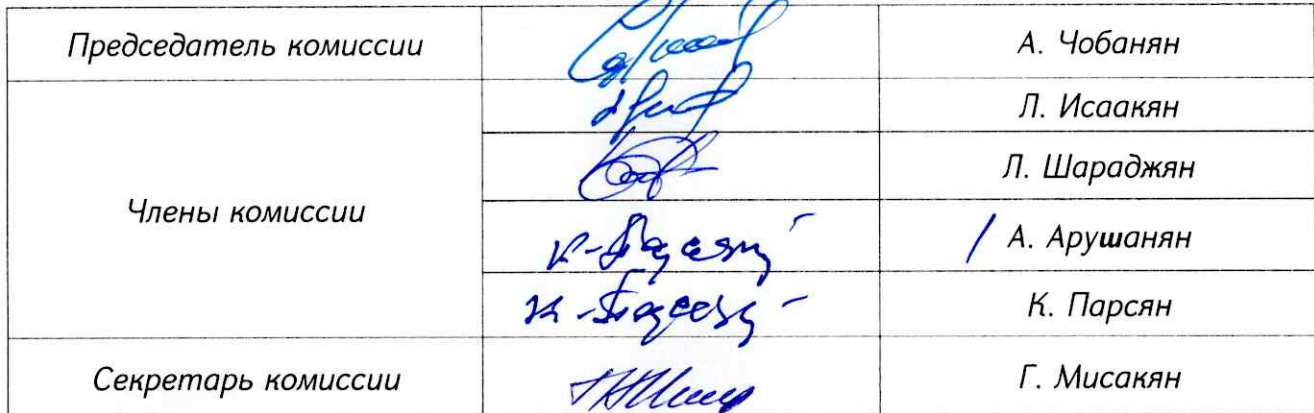 Председатель комиссии
А. Чобанян
Члены комиссии
Л. Исаакян
Л. Шараджян
/ А. Арушанян
К. Парсян
Секретарь комиссии
Г. Мисакян